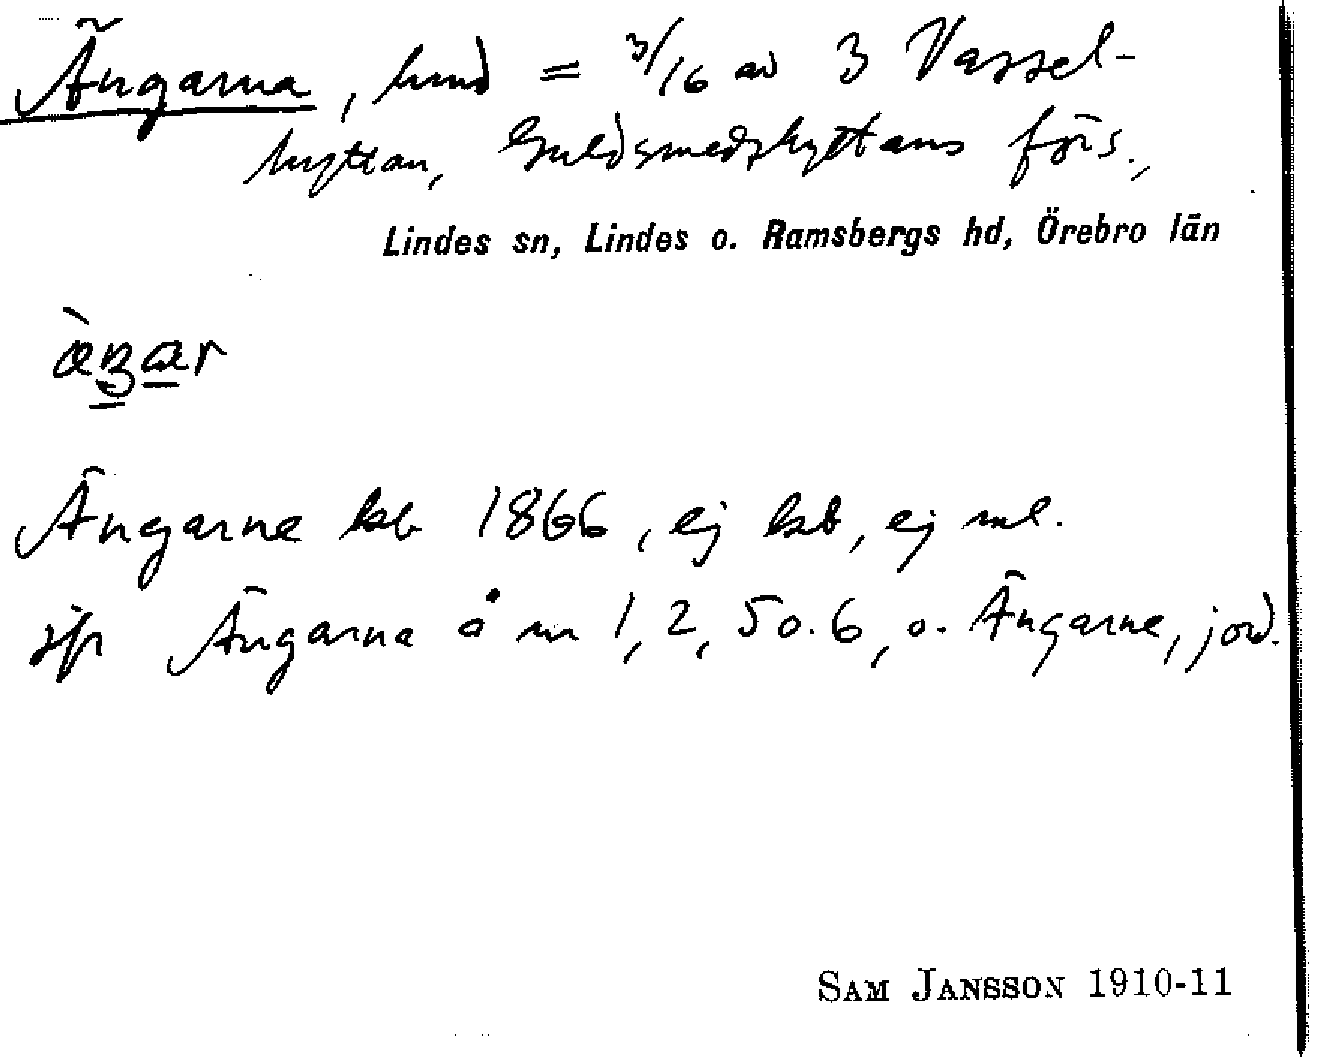 Ängarna, hmd = 3/16 av 3 Vassel-
hyttan, Guldsmedshyttans förs.,
Lindes sn, Lindes o. Ramsbergs hd, Örebro län
Ängarne kb 1866, ej ksb, ej ml.
jfr Ängarna å nr 1, 2, 5 o. 6, o. Ängarne, jord.
SAM JANSSON 1910-11